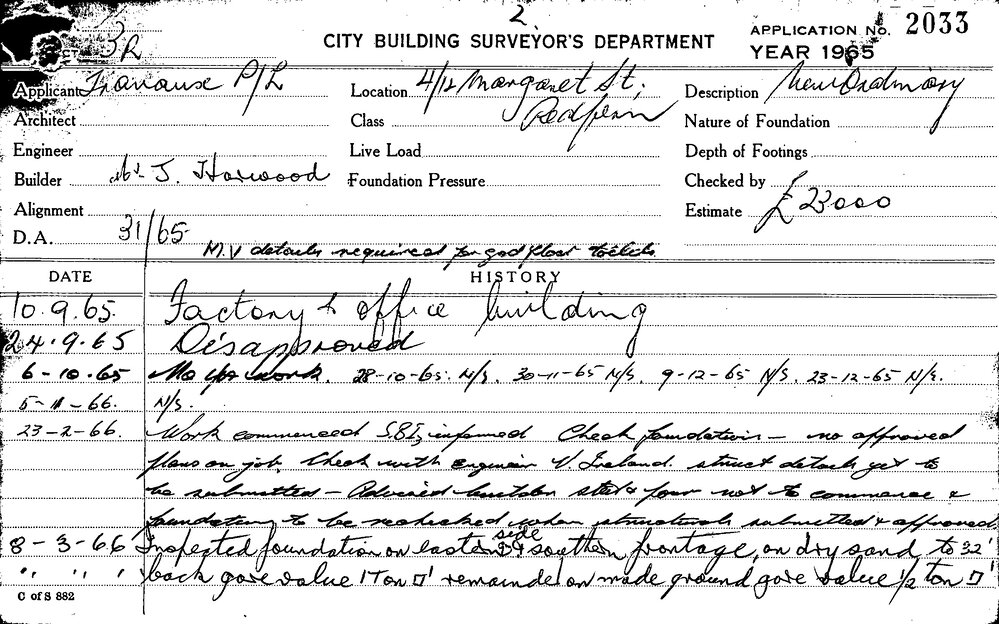 2.
3R
CITY BUILDING SURVEYOR'S DEPARTMENT
APPLICATION No. 2033
YEAR 1965
Applicant P/L
Location 4/12 Margaret St,
Redfern
Description New Ordinary
Architect
Class
Nature of Foundation
Engineer
Live Load
Depth of Footings
Builder J. Harwood
Foundation Pressure
Checked by
Alignment
Estimate £23000
D.A. 31/65
M.V details required for gnd floor toilets.
DATE HISTORY
10.9.65. Factory & office building
24.9.65 Disapproved
6-10-65 No work. 28-10-65. N/S. 30-11-65 N/S. 9-12-65 N/S. 23-12-65 N/S.
66. N/S.
23-2-66. Work commenced S.B.I. informed Check foundations - no approved
plans on job. Check with engineer V. Ireland. struct details yet to
be submitted - Advised builder not to commence &
foundations to be rechecked when structurals submitted & approved
8-3-66 Inspected foundation on eastern side & southern frontage, on dry sand to 32'
" " " back gave value 1 Ton □' remainder on made ground gave value 1/2 ton □'
C of S 882